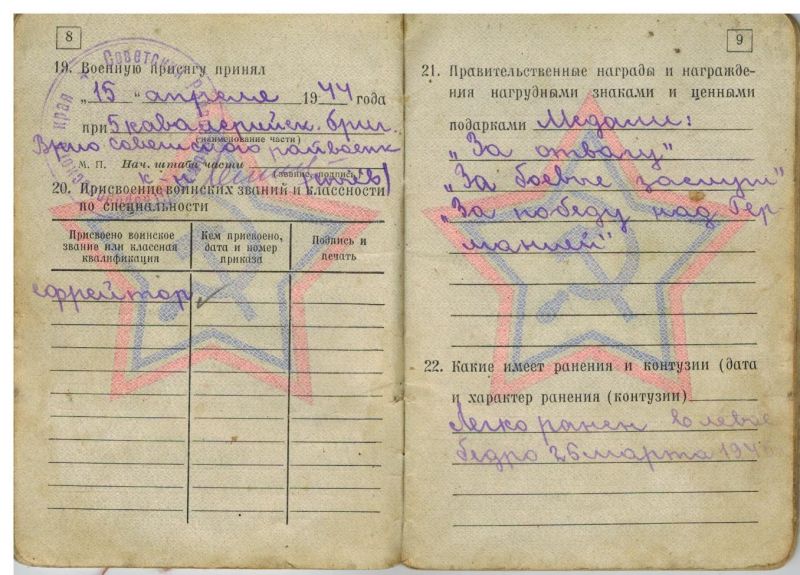 8
19. Военную присягу принял
„15“ апреля 1944 года
при 5 кавалерийск. бриг.
(наименование части)
Врио советского райвоенк
М. П. Нач. штаба части
(звание, подпись)
20. Присвоение воинских званий и классности
по специальности
Присвоено воинское
звание или классная
квалификация
Кем присвоено,
дата и номер
приказа
Подпись и
печать
ефрейтор
9
21. Правительственные награды и награжде-
ния нагрудными знаками и ценными
подарками Медали:
„За отвагу"
„За боевые заслуги"
„За победу над Гер
манией"
22. Какие имеет ранения и контузии (дата
и характер ранения (контузии)
Легко ранен в левое
бедро 26 марта